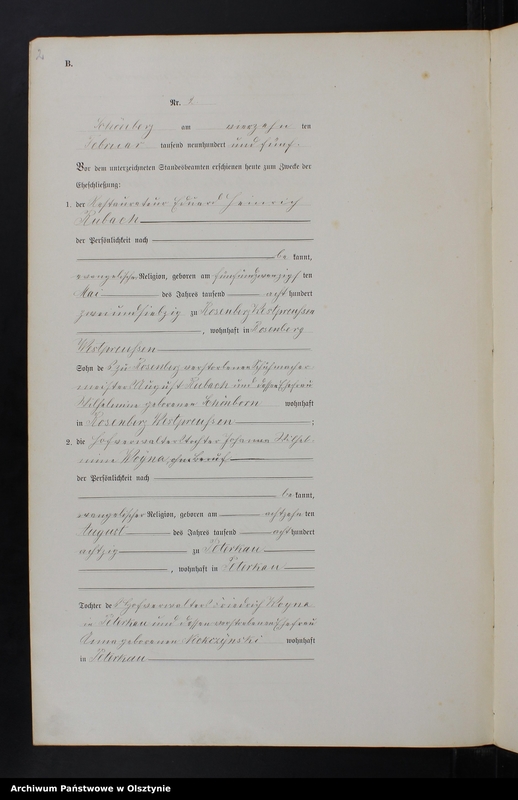 2
B.
Nr. 2
am vierzehn ten
Februar tausend neunhundert und fünf.
Vor dem unterzeichneten Standesbeamten erschienen heute zum Zwecke der
Eheschließung:
1. der Restaurateur Eduard Heinrich
Rubach
der Persönlichkeit nach
be kannt,
evangelischer Religion, geboren am fünfundzwanzigs ten
Mai des Jahres tausend acht hundert
zweiundsiebzig zu Rosenberg Westpreußen
, wohnhaft in Rosenberg
Westpreußen
Sohn des zu Rosenberg verstorbenen Schuhmacher-
meisters August Rubach und dessen Ehefrau
Wilhelmine geborenen wohnhaft
in Rosenberg Westpreußen ;
2. die Hofverwalterstochter Johanna Wilhel-
mine Woyna, ohne Beruf
der Persönlichkeit nach
be kannt,
evangelischer Religion, geboren am achtzehn ten
August des Jahres tausend acht hundert
achtzig zu Peterkau
, wohnhaft in Peterkau
Tochter des Hofverwalters Friedrich Woyna
in Peterkau und dessen verstorbenen Ehefrau
Anna geborenen wohnhaft
in Peterkau
Archiwum Państwowe w Olsztynie